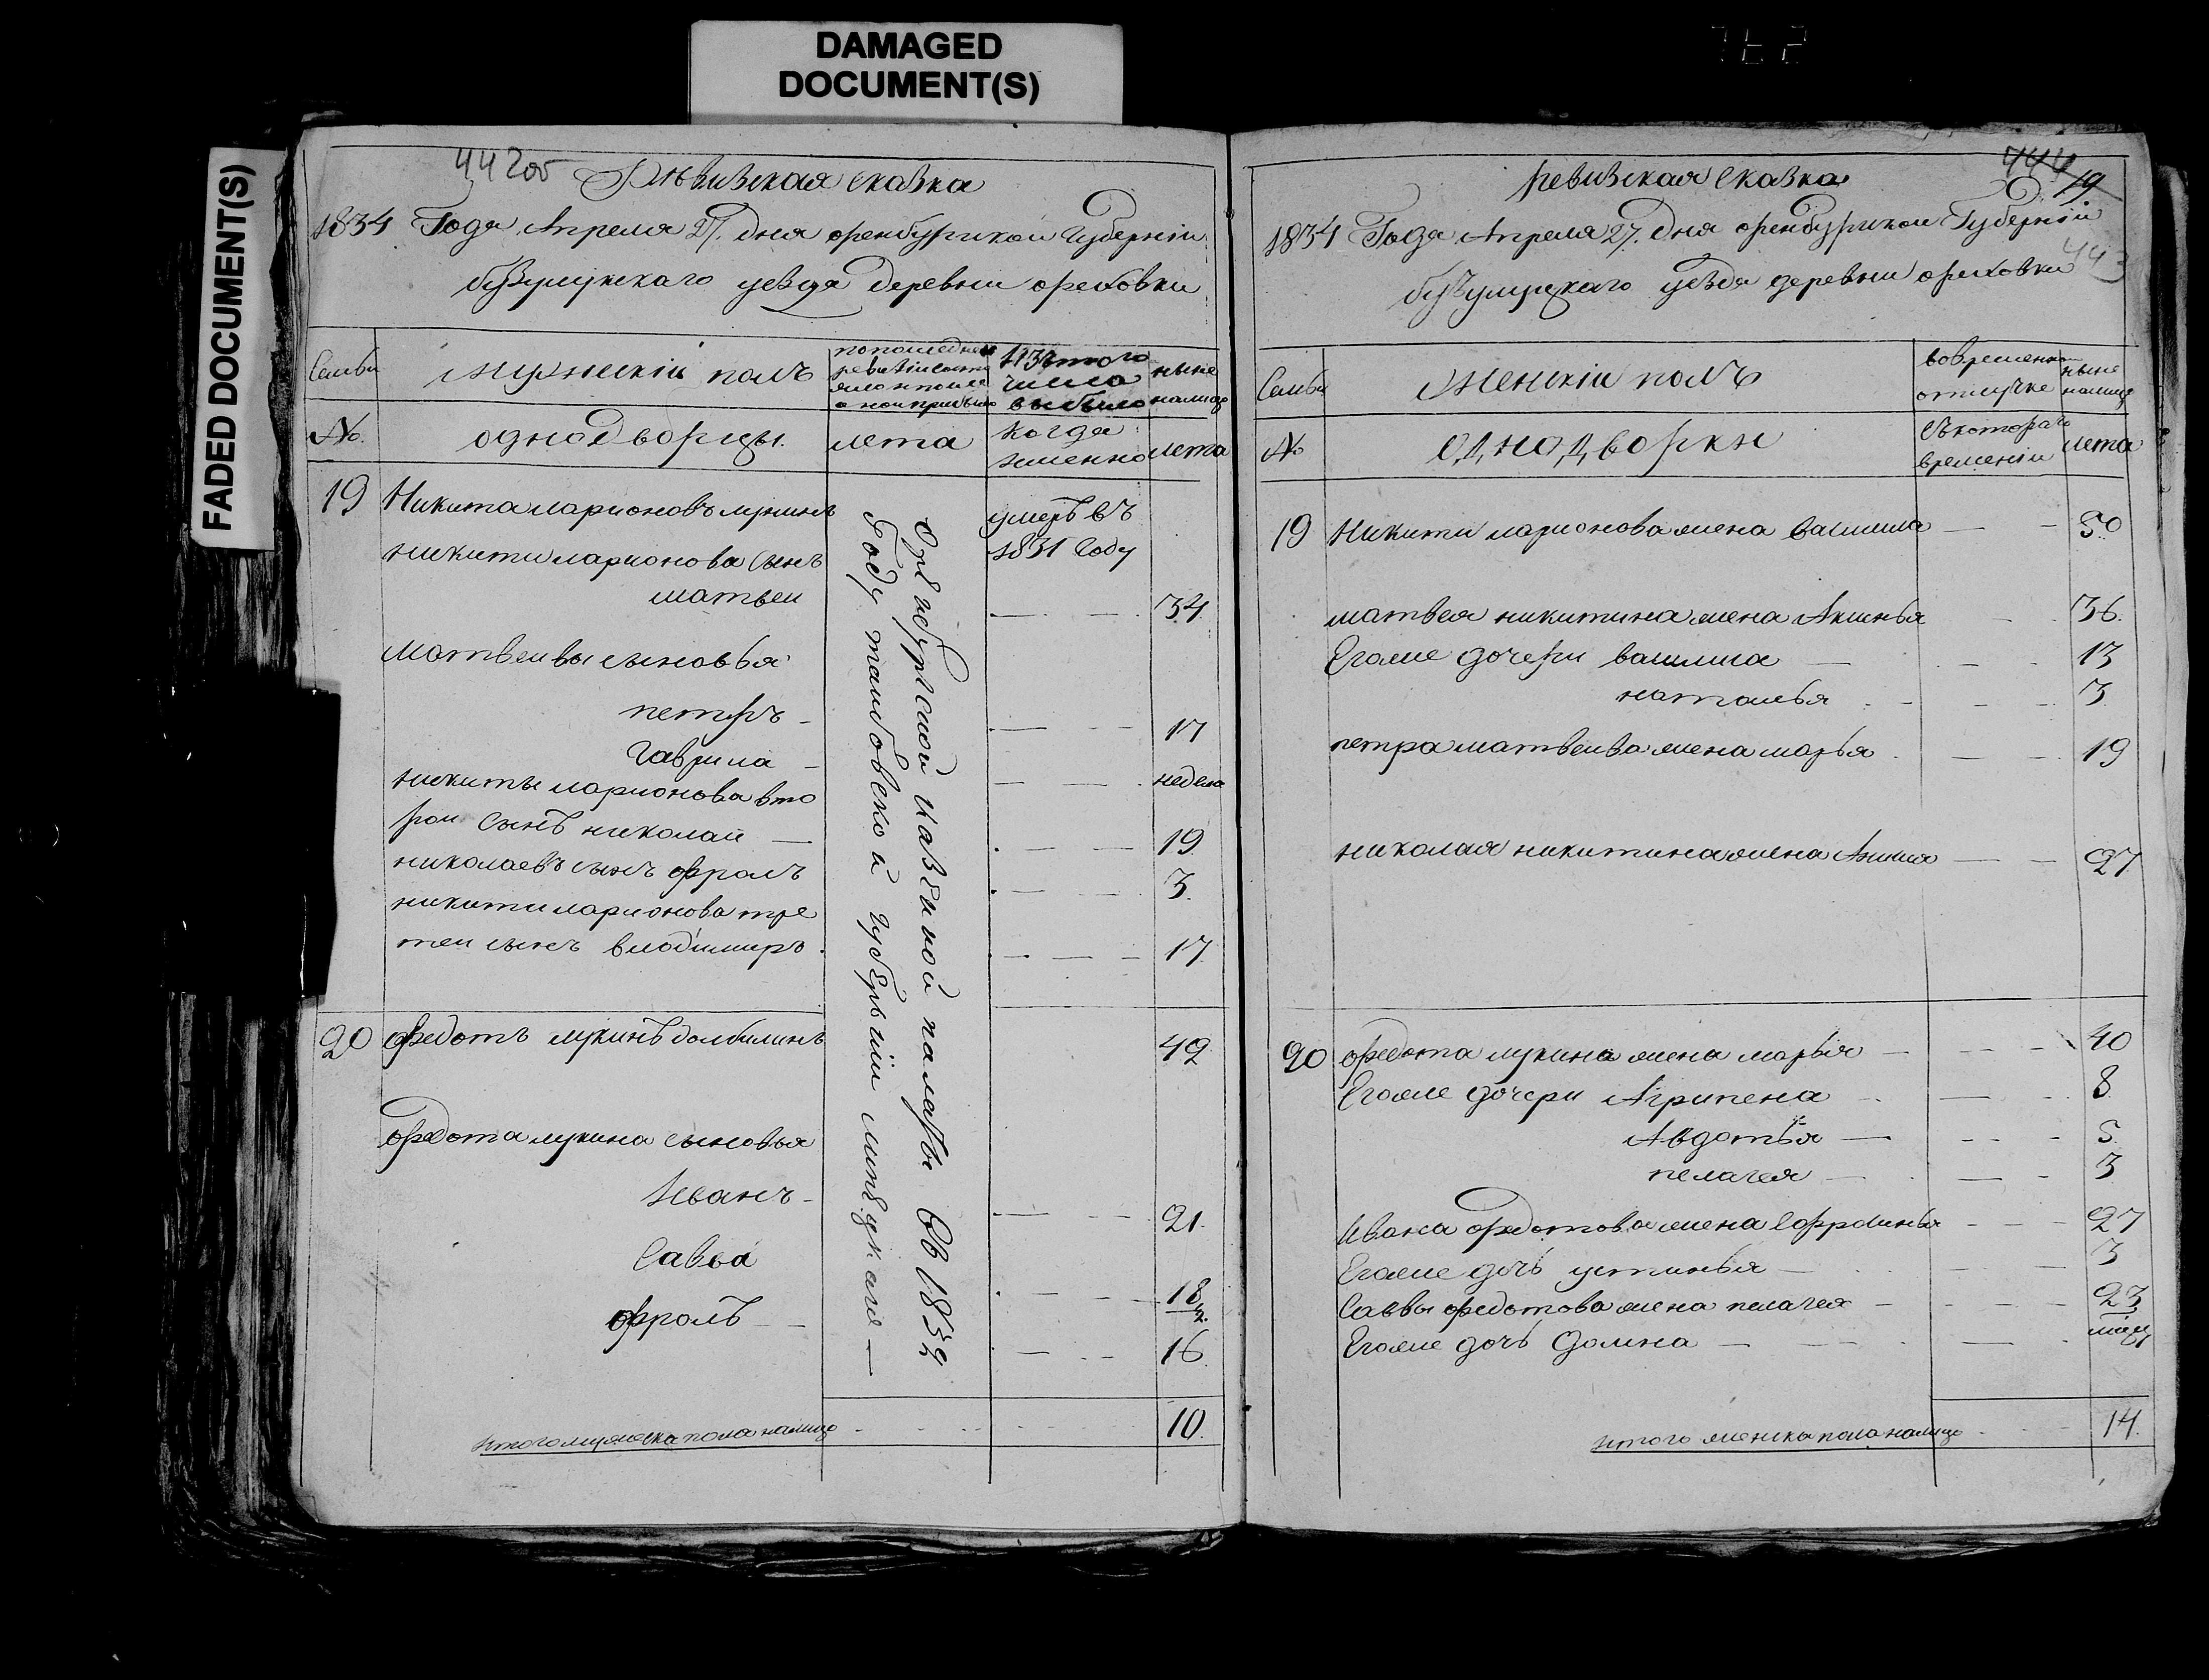 DAMAGED
DOCUMENT(S)
FADED DOCUMENT(S)
Ревизская сказка
1834 Года Апреля 27. дня оренбургской Губерніи
бузулуцкаго уезда деревни ореховки
Семьи
мужескій полъ
изъ того
числа
выбыло
ныне
налицо
№.
однодворцы.
лета
когда
именно
лета
19 Никита ларионовъ лунинъ
умеръ въ
1831 Году
никити ларионова сынъ
матвеи
34
матвеивы сыновья
петръ
17
Гаврила
неделя
никиты ларионова вто
рои сынъ николаи
19
николаевъ сынъ фролъ
3
никити ларионова тре
теи сынъ владимиръ
17
20 федотъ лукинъ долбилинъ
42
федота лукина сыновья
Иванъ
21
Савва
18
фролъ
16
Оренбургской казенной палаты въ 1832
Году тамбовской губерніи
итого мужеска пола налицо
10
ревизская сказка
444
19
443
1834 Года Апреля 27. дня оренбургской Губерніи
бузулуцкаго уезда деревни ореховки
Семьи
женскіи полъ
вовременнои
отлучке
ныне
налицо
№
однодворки
съкотораго
времении
лета
19 Никити ларионова жена василиса 50
матвея никитина жена Аксинья 36
Егоже дочери василиса 13
наталья 3
петра матвеива жена марья 19
николая никитина жена Анисия 27
20 федота лукина жена марья 40
Егоже дочери Агрипена 8
Авдотья 5
пелагея 3
Ивана федотова жена Ефросинья 27
Егоже дочь устинья 3
Саввы федотова жена пелагея 23
Егоже дочь Домна
итого женска пола налицо 14